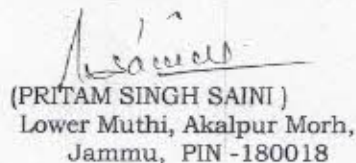 (PRITAM SINGH SAINI )
Lower Muthi, Akalpur Morh,
Jammu, PIN -180018